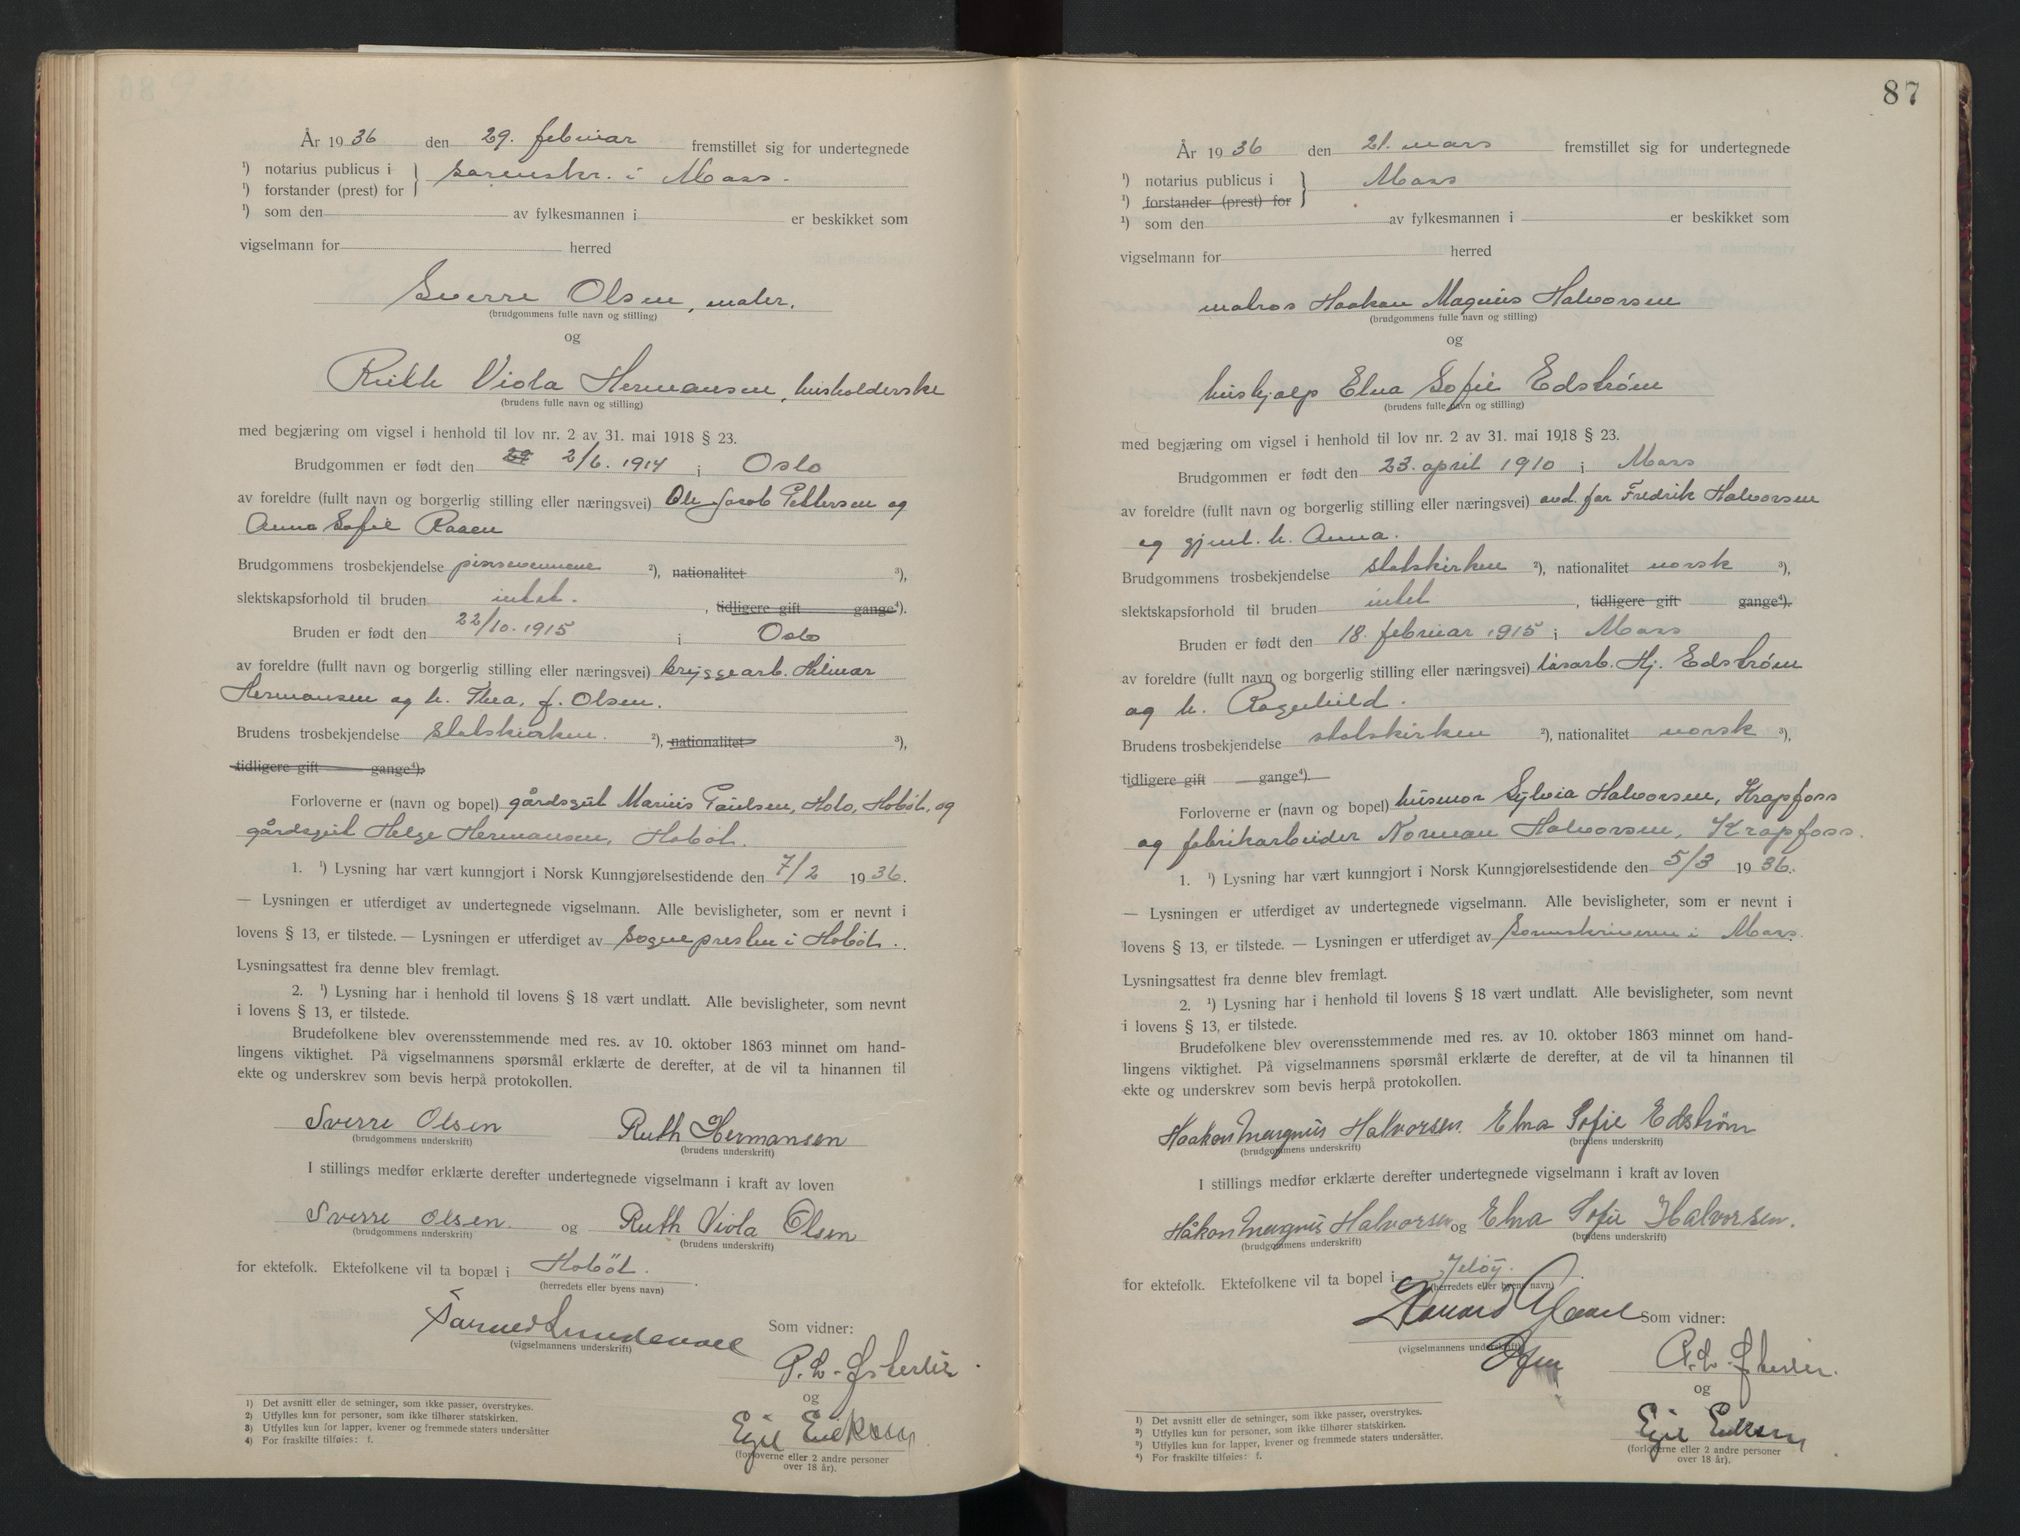 År 1936 den 29. februar fremstillet sig for undertegnede
¹) notarius publicus i
¹) forstander (prest) for } sorenskr. i Moss.
¹) som den av fylkesmannen i er beskikket som
vigselmann for herred
Sverre Olsen, maler.
(brudgommens fulle navn og stilling)
og
Ruth Viola Hermansen, husholderske
(brudens fulle navn og stilling)
med begjæring om vigsel i henhold til lov nr. 2 av 31. mai 1918 § 23.
Brudgommen er født den 2/6. 1914 i Oslo
av foreldre (fullt navn og borgerlig stilling eller næringsvei) Ole Jacob Pettersen og
Anna Sofie Raaen
Brudgommens trosbekjendelse pinsevennene ²), nationalitet ³),
slektskapsforhold til bruden intet. , tidligere gift gange⁴).
Bruden er født den 22/10. 1915 i Oslo
av foreldre (fullt navn og borgerlig stilling eller næringsvei) bryggearb. Hilmar
Hermansen og h. Thea, f. Olsen.
Brudens trosbekjendelse statskirken. ²), nationalitet ³),
tidligere gift gange⁴).
Forloverne er (navn og bopel) gårdsgut Marius Paulsen, Holo, Hobøl, og
gårdsgut Helge Hermansen, Hobøl.
1. ¹) Lysning har vært kunngjort i Norsk Kunngjørelsestidende den 7/2 1936.
— Lysningen er utferdiget av undertegnede vigselmann. Alle bevisligheter, som er nevnt i
lovens § 13, er tilstede. — Lysningen er utferdiget av sognepresten i Hobøl.
Lysningsattest fra denne blev fremlagt.
2. ¹) Lysning har i henhold til lovens § 18 vært undlatt. Alle bevisligheter, som nevnt
i lovens § 13, er tilstede.
Brudefolkene blev overensstemmende med res. av 10. oktober 1863 minnet om hand-
lingens viktighet. På vigselmannens spørsmål erklærte de derefter, at de vil ta hinannen til
ekte og underskrev som bevis herpå protokollen.
Sverre Olsen Ruth Hermansen
(brudgommens underskrift) (brudens underskrift)
I stillings medfør erklærte derefter undertegnede vigselmann i kraft av loven
Sverre Olsen. og Ruth Viola Olsen
(brudgommens underskrift) (brudens underskrift)
for ektefolk. Ektefolkene vil ta bopæl i Hobøl.
(herredets eller byens navn)
Som vidner:
(vigselmannens underskrift)
P. L. Østerlie.
og
Egil Eriksen
(forloverne eller 2 andre personer
over 18 år).
1) Det avsnitt eller de setninger, som ikke passer, overstrykes.
2) Utfylles kun for personer, som ikke tilhører statskirken.
3) Utfylles kun for lapper, kvener og fremmede staters undersåtter
4) For fraskilte tilføies: f.
87
År 1936 den 21. mars fremstillet sig for undertegnede
¹) notarius publicus i
¹) forstander (prest) for } Moss
¹) som den av fylkesmannen i er beskikket som
vigselmann for herred
matros Haakon Magnus Halvorsen
(brudgommens fulle navn og stilling)
og
hushjelp Elna Sofie Edstrøm
(brudens fulle navn og stilling)
med begjæring om vigsel i henhold til lov nr. 2 av 31. mai 1918 § 23.
Brudgommen er født den 23. april 1910 i Moss
av foreldre (fullt navn og borgerlig stilling eller næringsvei) avd. far Fredrik Halvorsen
og gjenl. h. Anna.
Brudgommens trosbekjendelse statskirken ²), nationalitet norsk ³),
slektskapsforhold til bruden intet , tidligere gift gange⁴).
Bruden er født den 18. februar 1915 i Moss
av foreldre (fullt navn og borgerlig stilling eller næringsvei) løsarb. Hj. Edstrøm
og h. Ragnhild.
Brudens trosbekjendelse statskirken ²), nationalitet norsk ³),
tidligere gift gange⁴).
Forloverne er (navn og bopel) husmor Sylvia Halvorsen, Krapfoss
og fabrikarbeider Norman Halvorsen, Krapfoss.
1. ¹) Lysning har vært kunngjort i Norsk Kunngjørelsestidende den 5/3 1936.
— Lysningen er utferdiget av undertegnede vigselmann. Alle bevisligheter, som er nevnt i
lovens § 13, er tilstede. — Lysningen er utferdiget av sorenskriveren i Moss.
Lysningsattest fra denne blev fremlagt.
2. ¹) Lysning har i henhold til lovens § 18 vært undlatt. Alle bevisligheter, som nevnt
i lovens § 13, er tilstede.
Brudefolkene blev overensstemmende med res. av 10. oktober 1863 minnet om hand-
lingens viktighet. På vigselmannens spørsmål erklærte de derefter, at de vil ta hinannen til
ekte og underskrev som bevis herpå protokollen.
Haakon Magnus Halvorsen. Elna Sofie Edstrøm
(brudgommens underskrift) (brudens underskrift)
I stillings medfør erklærte derefter undertegnede vigselmann i kraft av loven
Håkon Magnus Halvorsen og Elna Sofie Halvorsen.
(brudgommens underskrift) (brudens underskrift)
for ektefolk. Ektefolkene vil ta bopel i Jeløy.
(herredets eller byens navn)
Som vidner:
(vigselmannens underskrift)
P. L. Østerlie.
og
Egil Eriksen
(forloverne eller 2 andre personer
over 18 år).
¹) Det avsnitt eller de setninger, som ikke passer, overstrykes.
²) Utfylles kun for personer, som ikke tilhører statskirken.
³) Utfylles kun for lapper, kvener og fremmede staters undersåtter.
⁴) For fraskilte tilføies: f.